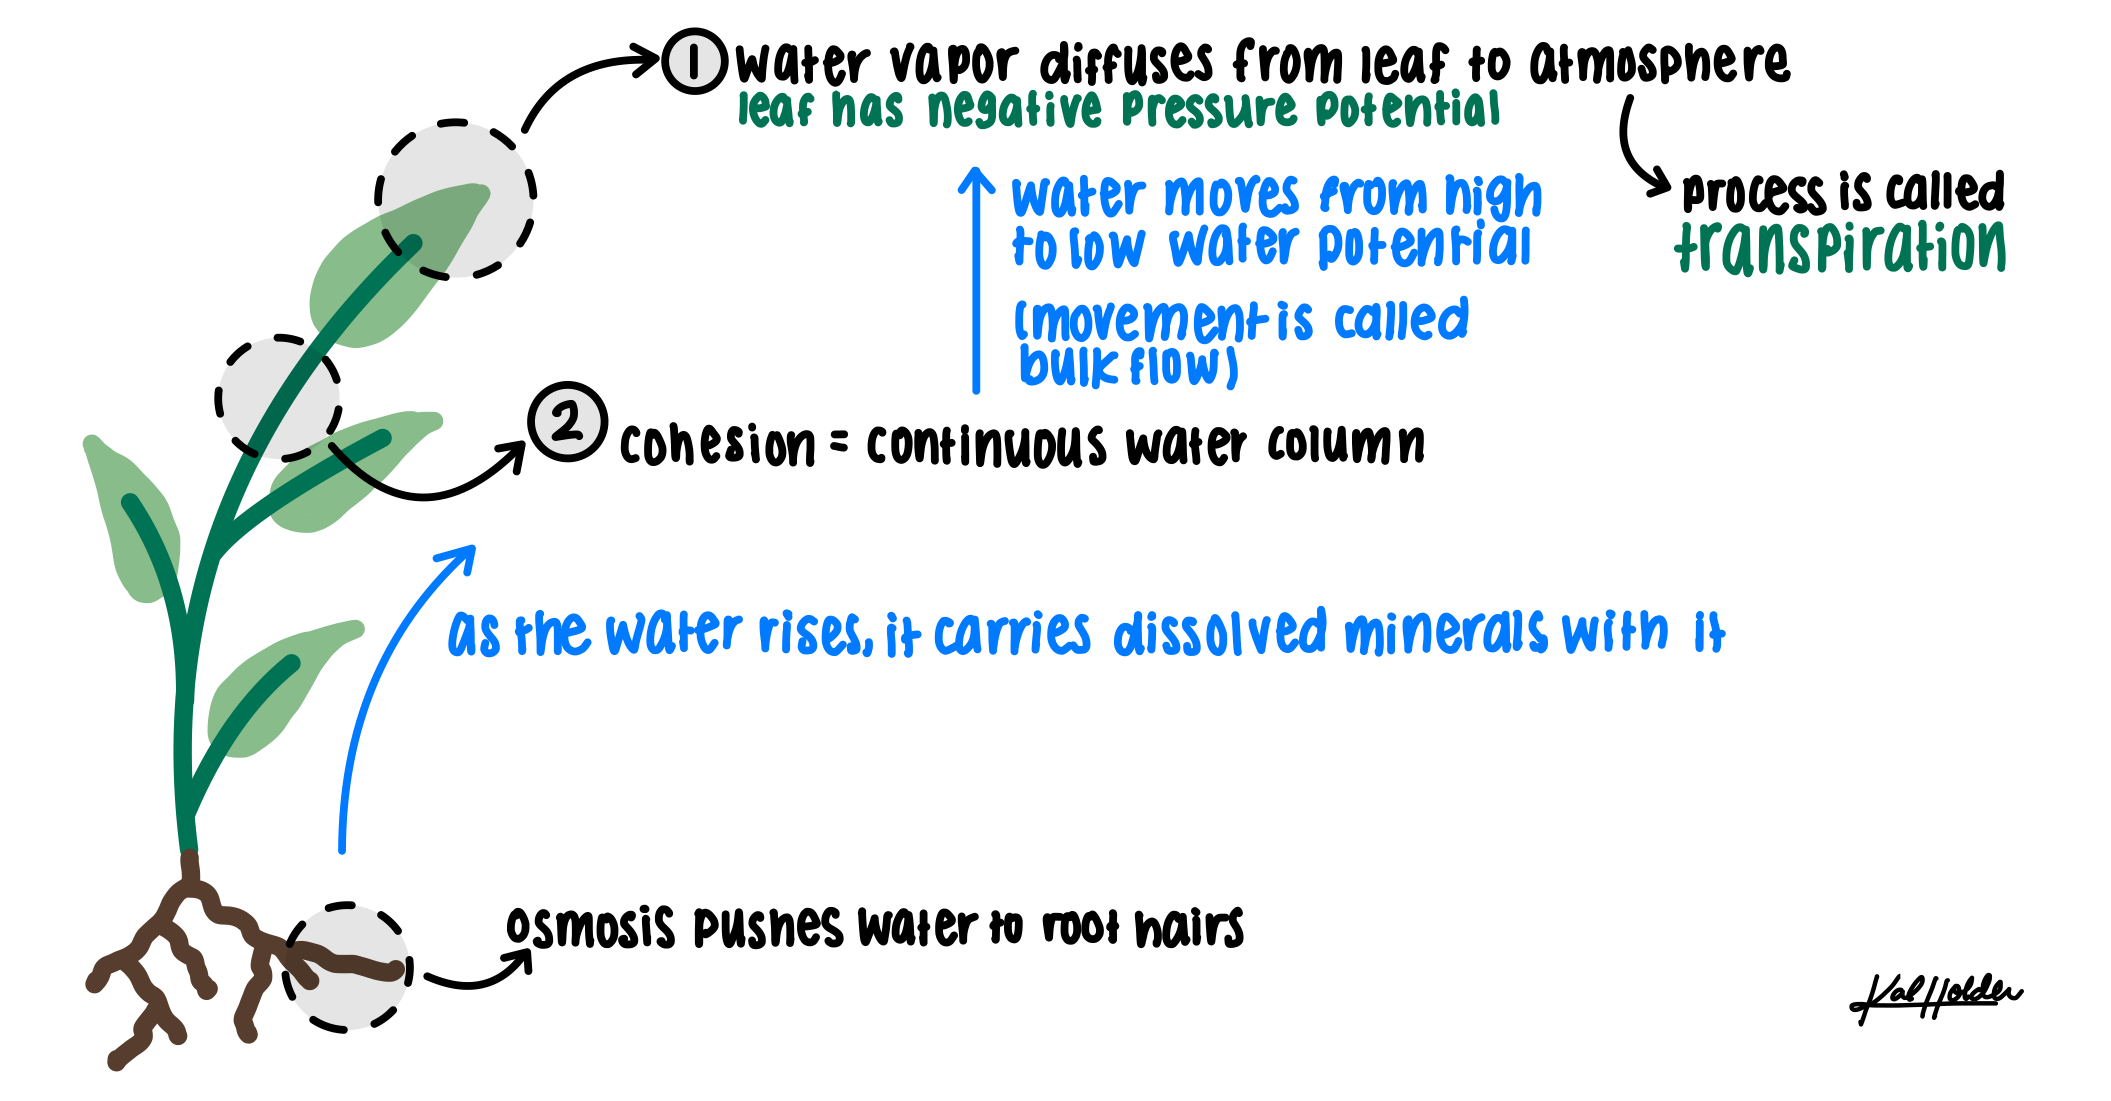 1 water vapor diffuses from leaf to atmosphere
leaf has negative pressure potential
process is called
transpiration
water moves from high
to low water potential
(movement is called
bulk flow)
2 cohesion = continuous water column
as the water rises, it carries dissolved minerals with it
osmosis pushes water to root hairs
Kal Holder